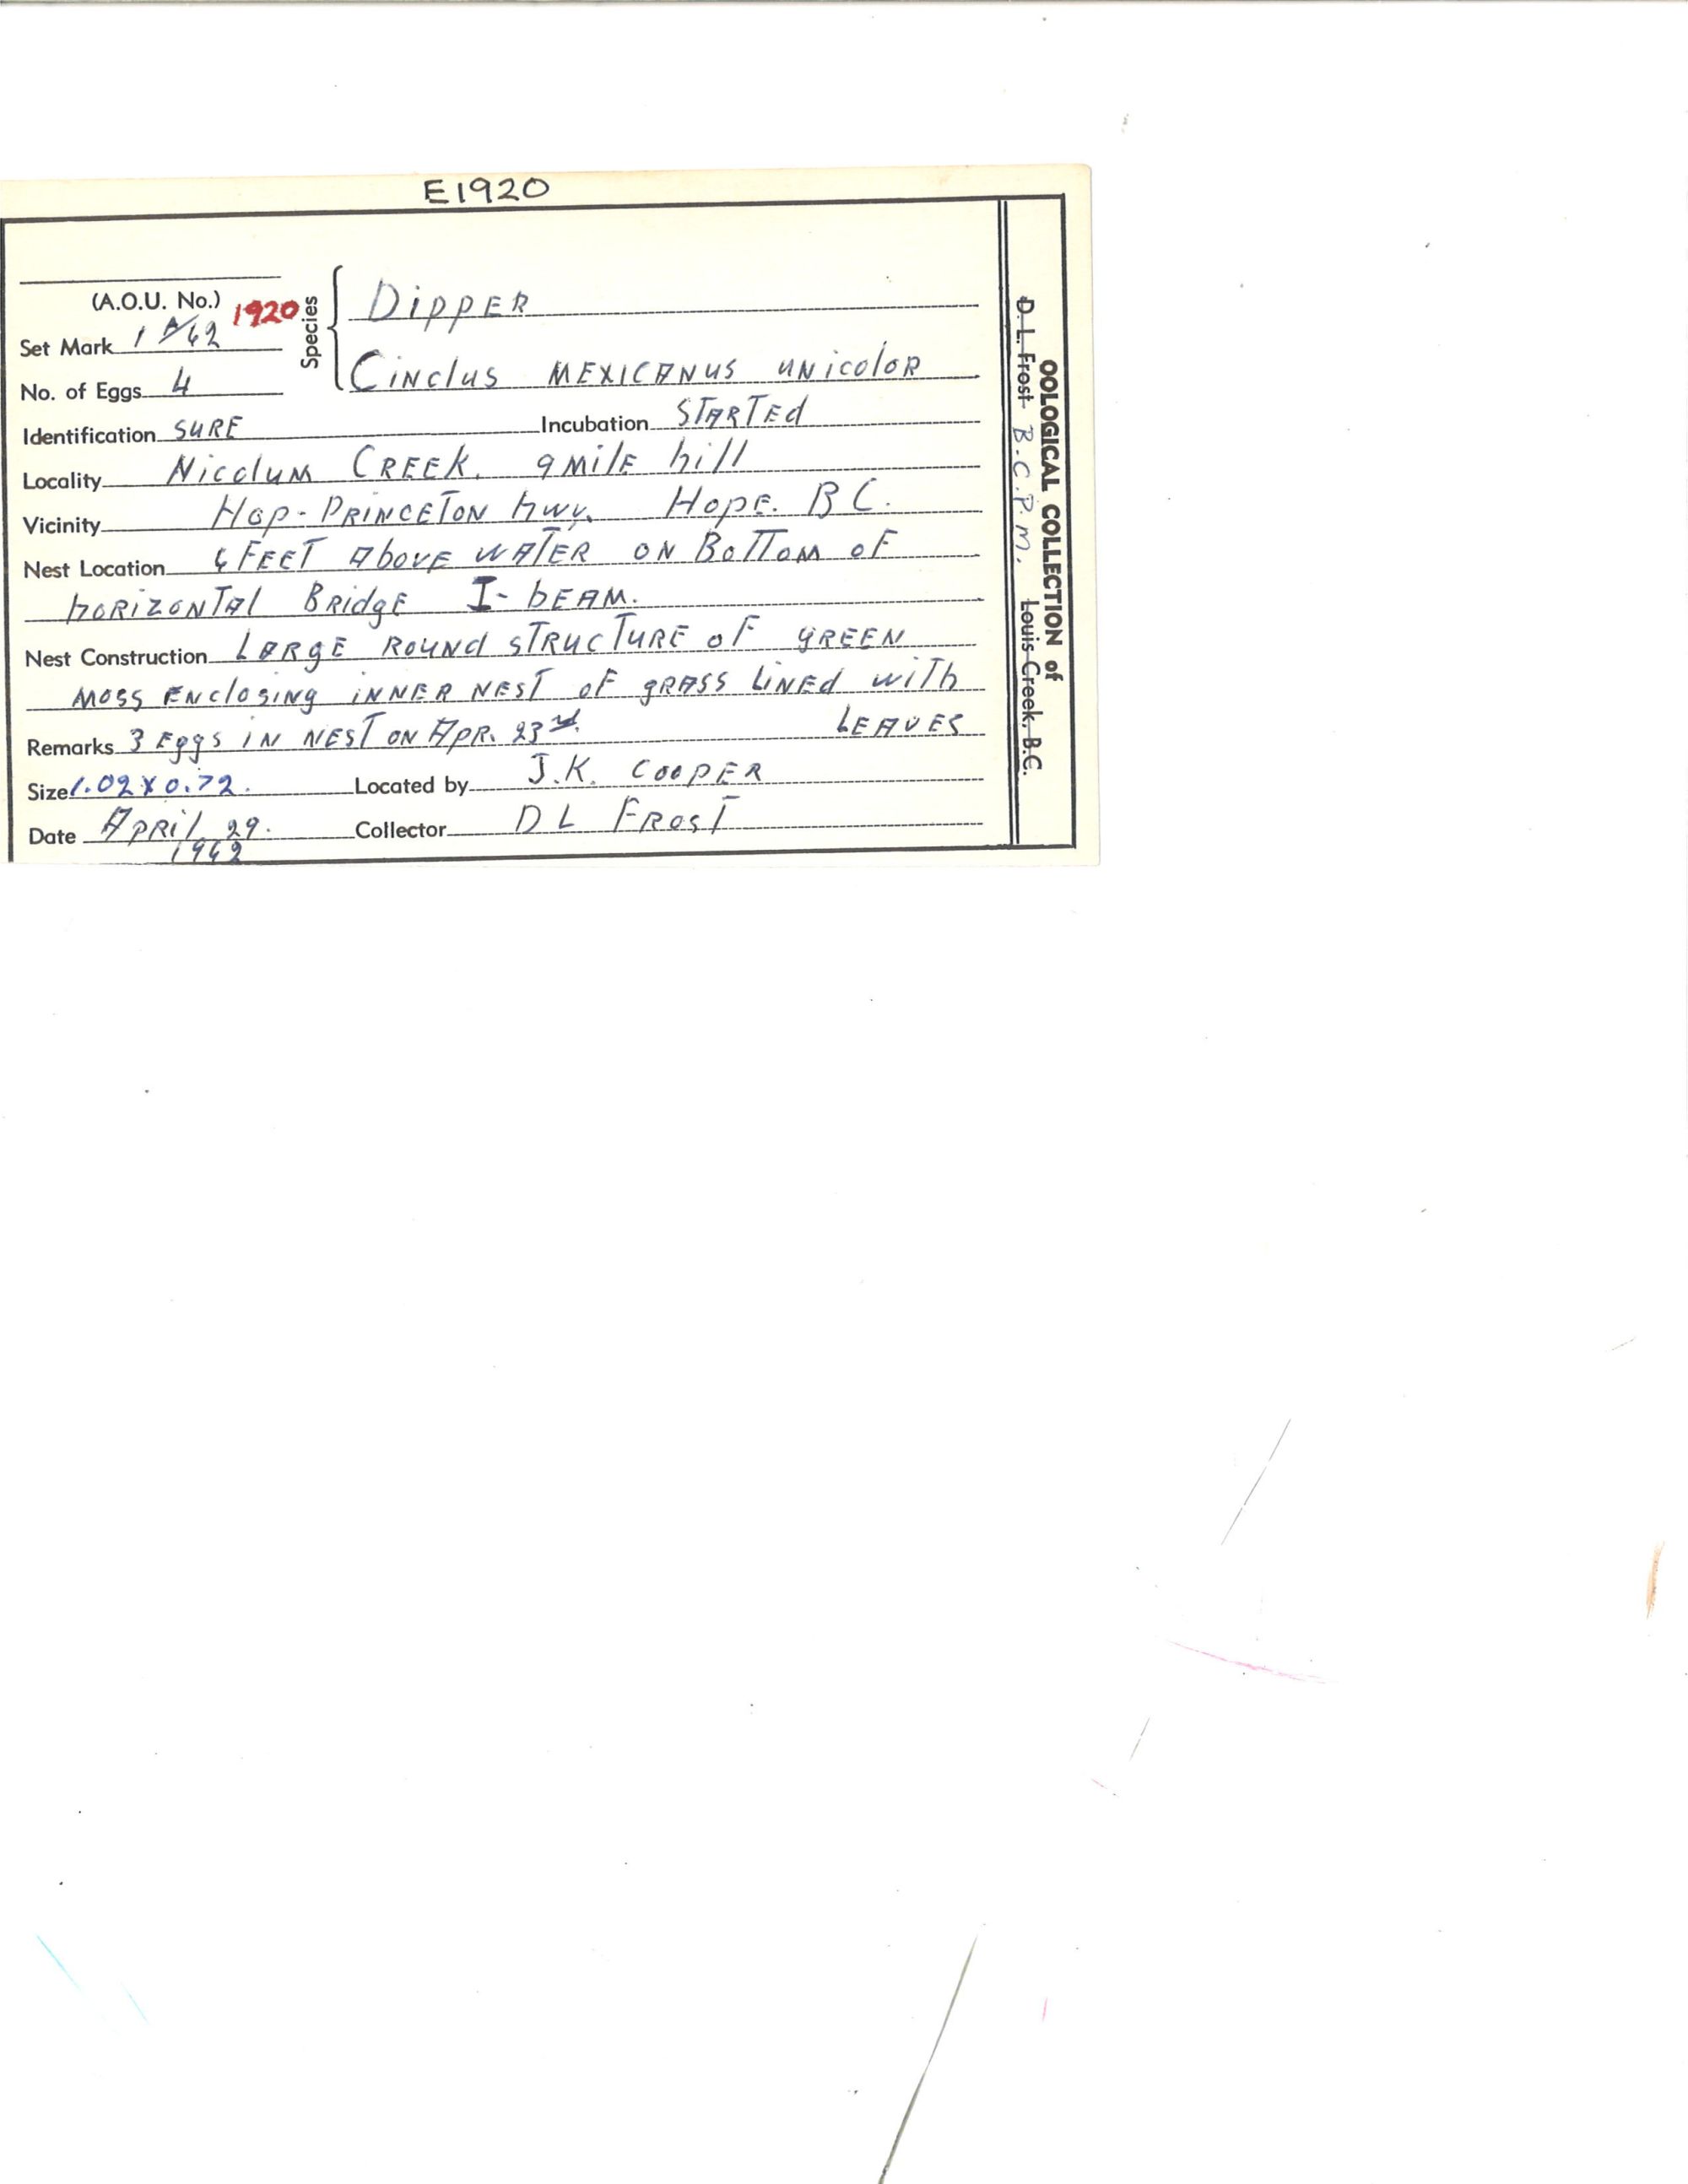 E1920
(A.O.U. No.) 1920
Set Mark 1 A/62
No. of Eggs 4
Species { Dipper
Cinclus MEXICANUS UNicoloR
Identification SURE Incubation STARTEd
Locality Nicolum CREEK. 9 MilE hill
Vicinity Hop-PRINCETON hwy. HopE. B C.
Nest Location 6 FEET AbovE WATER ON BoTTom oF
hoRIZONTAl BRidgE I-bEAM.
Nest Construction LARgE RouNd STRUCTURE oF gREEN
moss ENclosiNg iNNER NEST oF gRASS LiNEd with
LEAVES
Remarks 3 Eggs IN NEST ON APR. 23rd.
Size 1.02 X 0.72. Located by J.K. CooPER
Date APRil 29. 1962 Collector D L FRosT
OOLOGICAL COLLECTION of
D. L. Frost B.C.P.M. Louis Creek, B.C.